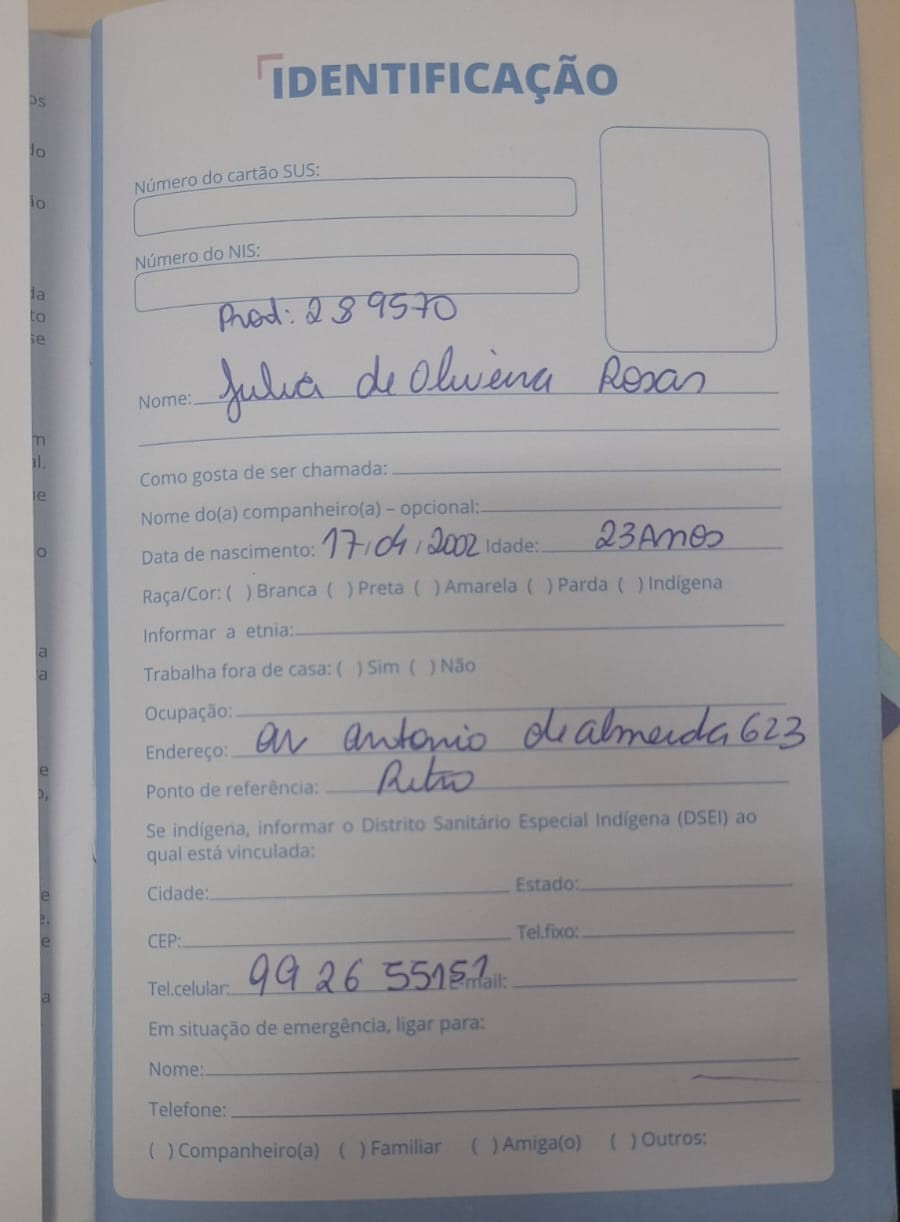 IDENTIFICAÇÃO
Número do cartão SUS:
Número do NIS:
Prod: 289570
Nome: Julia de Oliveira Rosas
Como gosta de ser chamada:
Nome do(a) companheiro(a) – opcional:
Data de nascimento: 17/04/2002 Idade: 23 Anos
Raça/Cor: ( ) Branca ( ) Preta ( ) Amarela ( ) Parda ( ) Indígena
Informar a etnia:
Trabalha fora de casa: ( ) Sim ( ) Não
Ocupação:
Endereço: av antonio de almeida 623
Ponto de referência: Retro
Se indígena, informar o Distrito Sanitário Especial Indígena (DSEI) ao
qual está vinculada:
Cidade: Estado:
CEP: Tel.fixo:
Tel.celular: 99 26 55151 mail:
Em situação de emergência, ligar para:
Nome:
Telefone:
( ) Companheiro(a) ( ) Familiar ( ) Amiga(o) ( ) Outros: